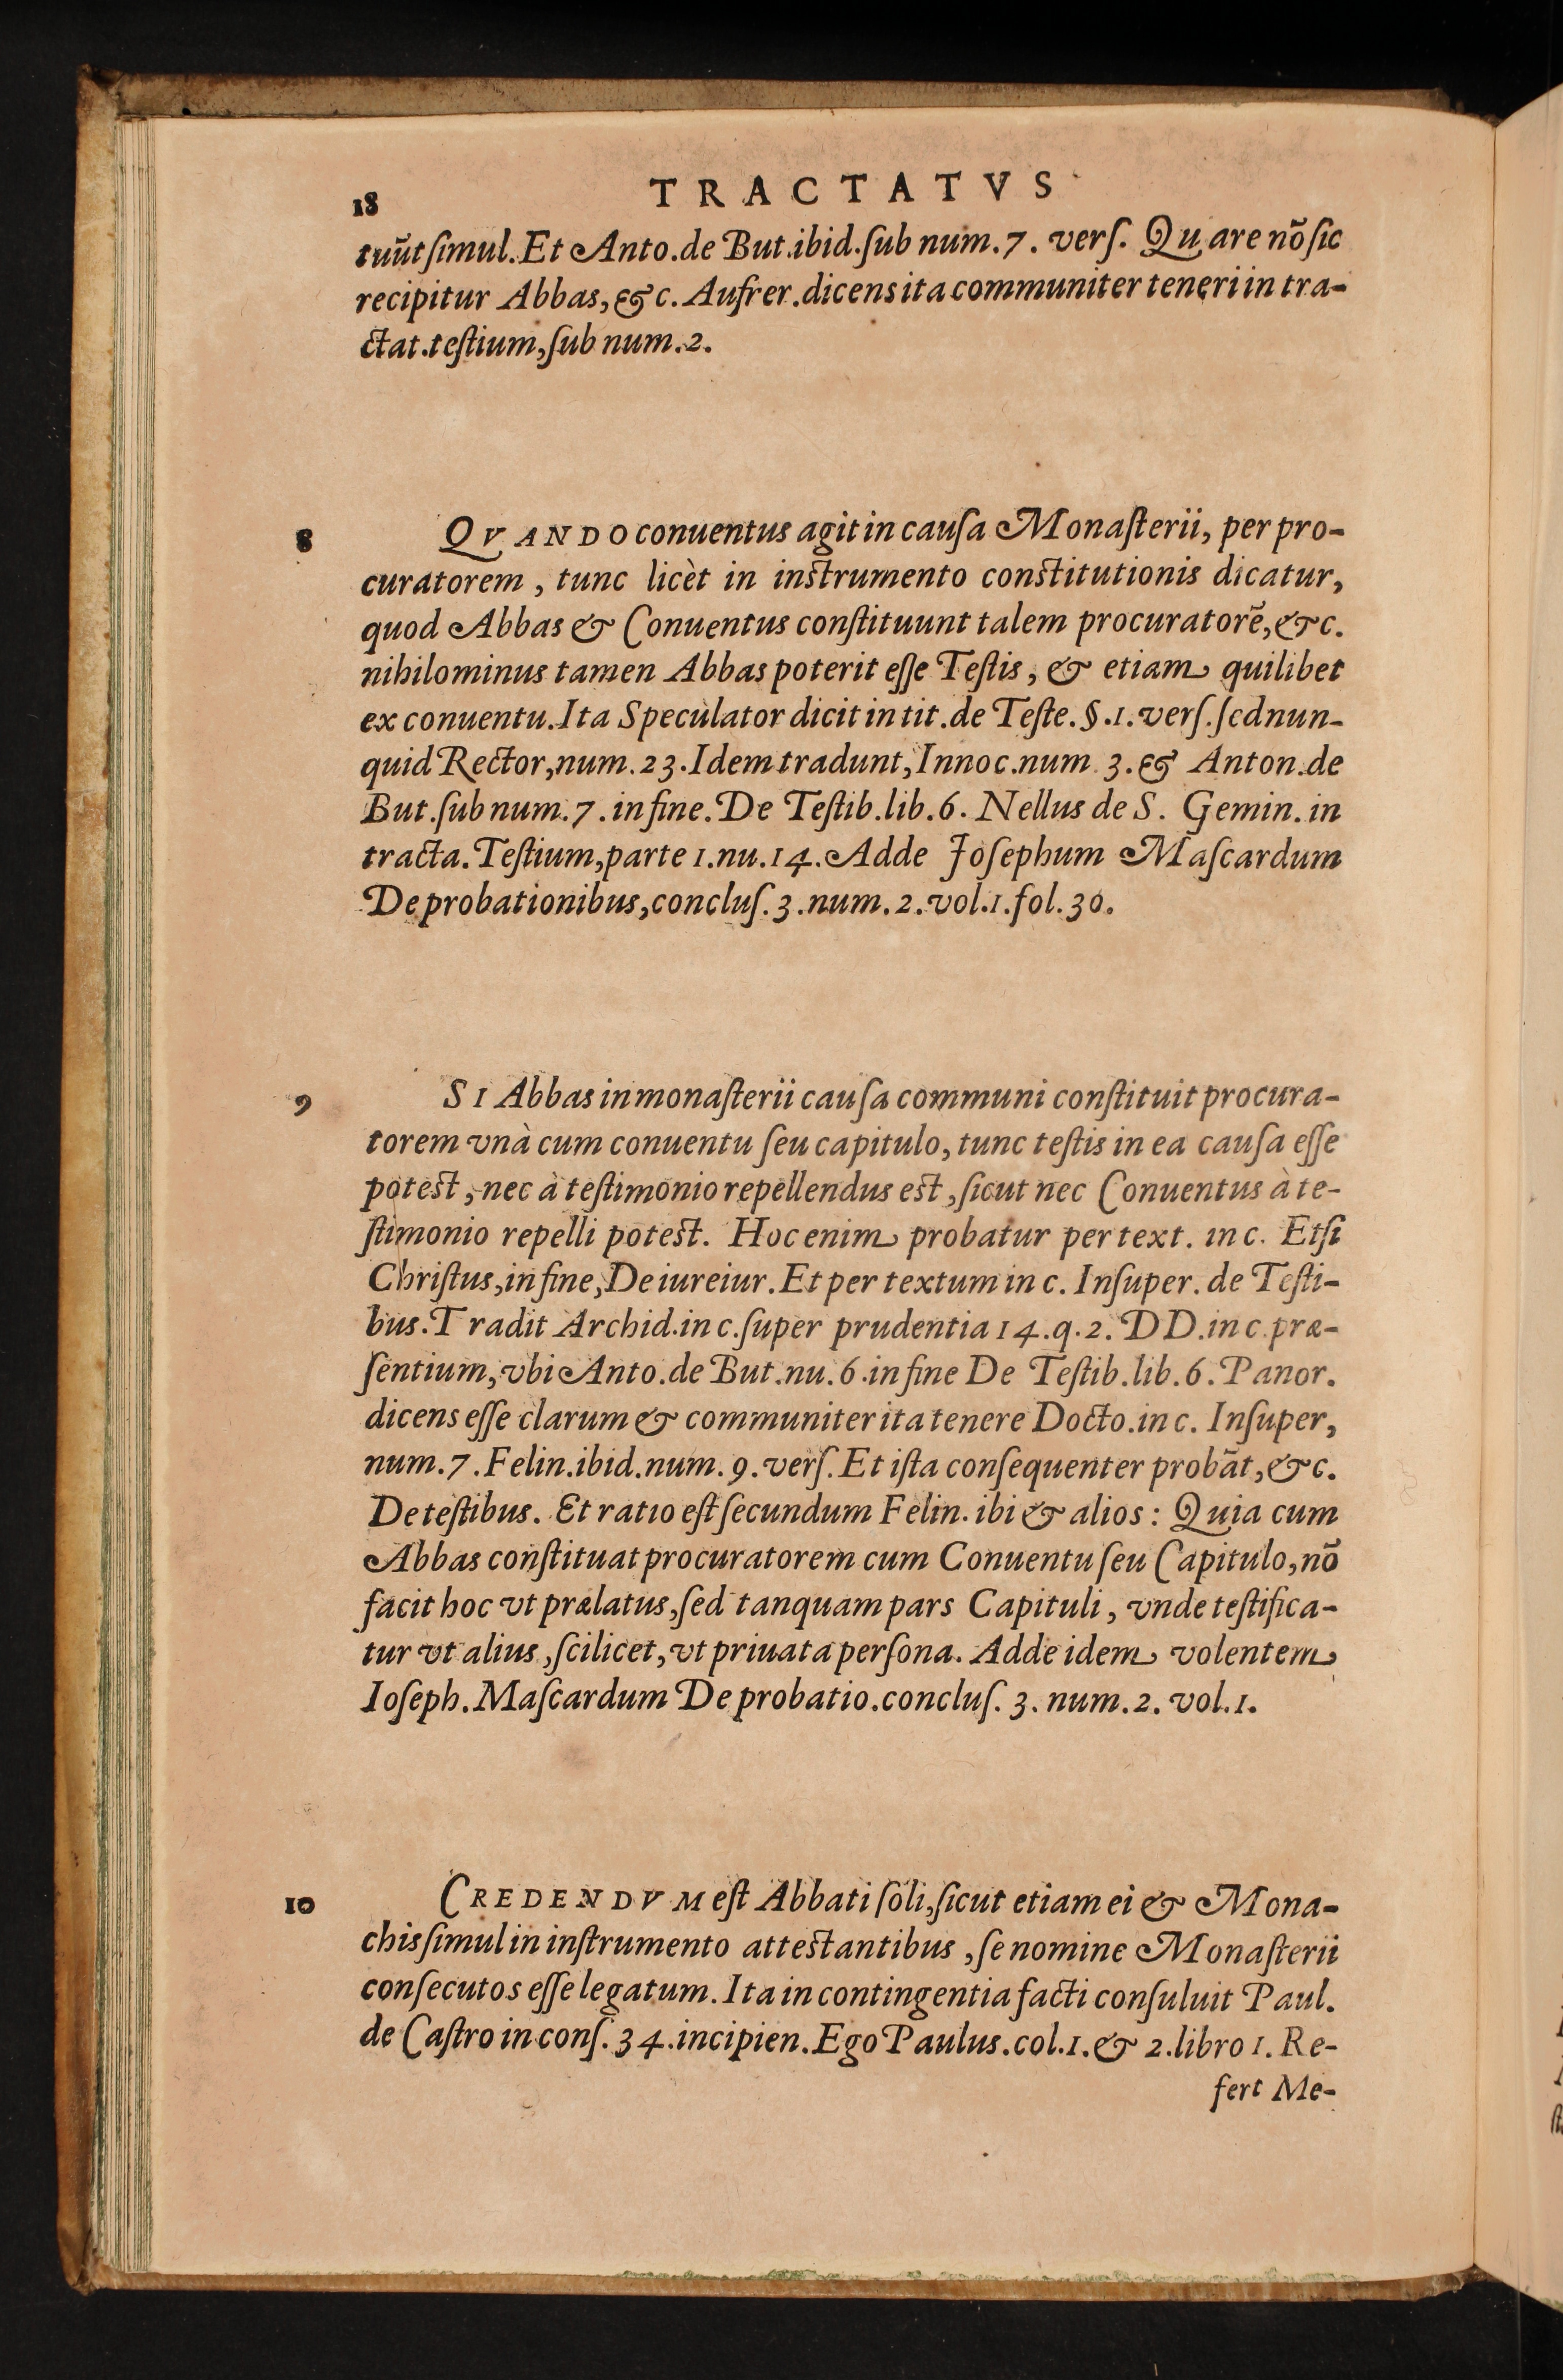 18 TRACTATVS
tuũt ſimul. Et Anto. de But. ibid. ſub num. 7. verſ. Quare nõ ſic
recipitur Abbas, &c. Aufrer. dicens ita communiter teneri in tra-
ctat. teſtium, ſub num. 2.
8 QVANDO conuentus agit in cauſa Monaſterii, per pro-
curatorem, tunc licèt in instrumento constitutionis dicatur,
quod Abbas & Conuentus conſtituunt talem procuratorẽ, &c.
nihilominus tamen Abbas poterit eſſe Teſtis, & etiam quilibet
ex conuentu. Ita Speculator dicit in tit. de Teſte. §. 1. verſ. ſed nun-
quid Rector, num. 23. Idem tradunt, Innoc. num 3. & Anton. de
But. ſub num. 7. in fine. De Teſtib. lib. 6. Nellus de S. Gemin. in
tracta. Teſtium, parte 1. nu. 14. Adde Joſephum Maſcardum
De probationibus, concluſ. 3. num. 2. vol. 1. fol. 30.
9 SI Abbas in monaſterii cauſa communi conſtituit procura-
torem vnà cum conuentu ſeu capitulo, tunc teſtis in ea cauſa eſſe
potest, nec à teſtimonio repellendus est, ſicut nec Conuentus à te-
ſtimonio repelli potest. Hoc enim probatur per text. in c. Etſi
Chriſtus, in fine, De iureiur. Et per textum in c. Inſuper. de Teſti-
bus. Tradit Archid. in c. ſuper prudentia 14. q. 2. DD. in c. præ-
ſentium, vbi Anto. de But. nu. 6. in fine De Teſtib. lib. 6. Panor.
dicens eſſe clarum & communiter ita tenere Docto. in c. Inſuper,
num. 7. Felin. ibid. num. 9. verſ. Et iſta conſequenter probãt, &c.
De teſtibus. Et ratio eſt ſecundum Felin. ibi & alios: Quia cum
Abbas conſtituat procuratorem cum Conuentu ſeu Capitulo, nõ
facit hoc vt prælatus, ſed tanquam pars Capituli, vnde teſtifica-
tur vt alius, ſcilicet, vt priuata perſona. Adde idem volentem
Ioſeph. Maſcardum De probatio. concluſ. 3. num. 2. vol. 1.
10 CREDENDVM eſt Abbati ſoli, ſicut etiam ei & Mona-
chis ſimul in inſtrumento attestantibus, ſe nomine Monaſterii
conſecutos eſſe legatum. Ita in contingentia facti conſuluit Paul.
de Caſtro in conſ. 34. incipien. Ego Paulus. col. 1. & 2. libro 1. Re-
fert Me-